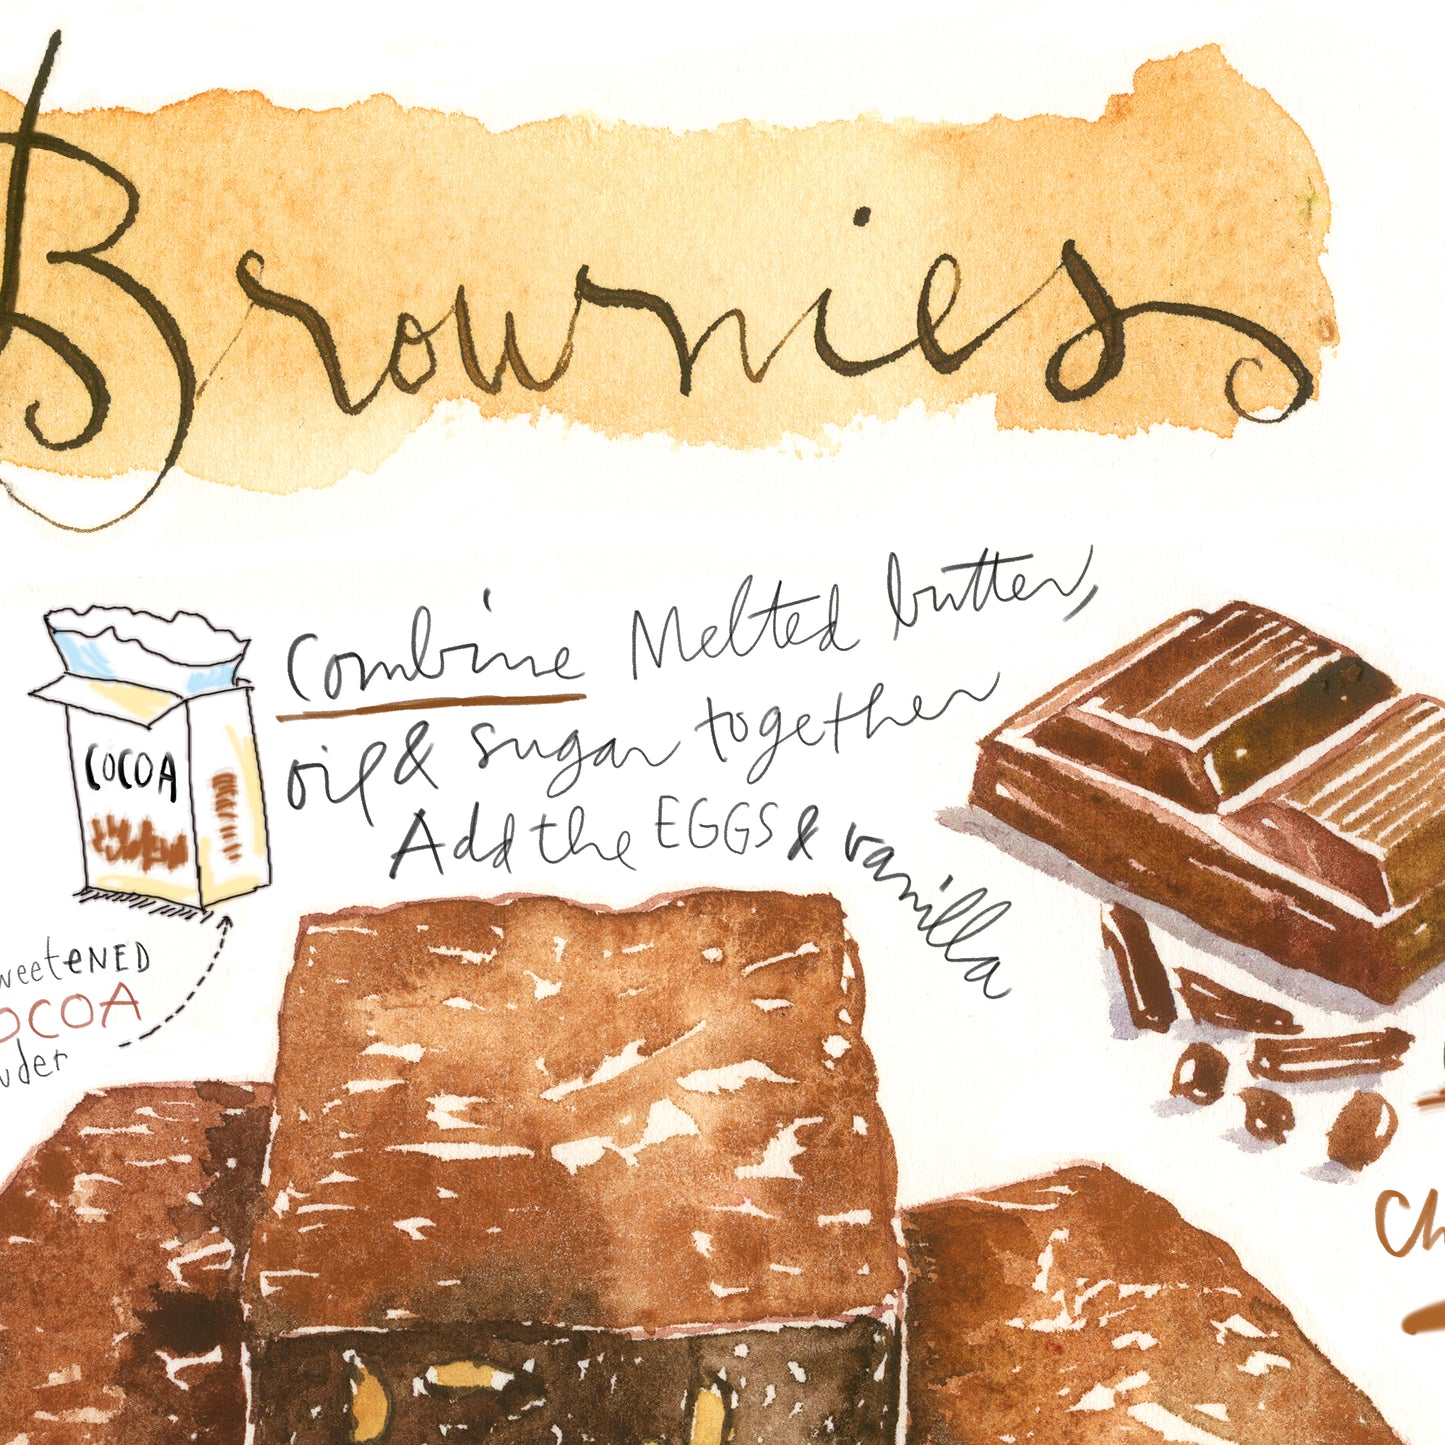 Brownies
Combine Melted butter,
oil & sugar together
Add the EGGS & vanilla
COCOA
weetENED
OCOA
wder
Ch